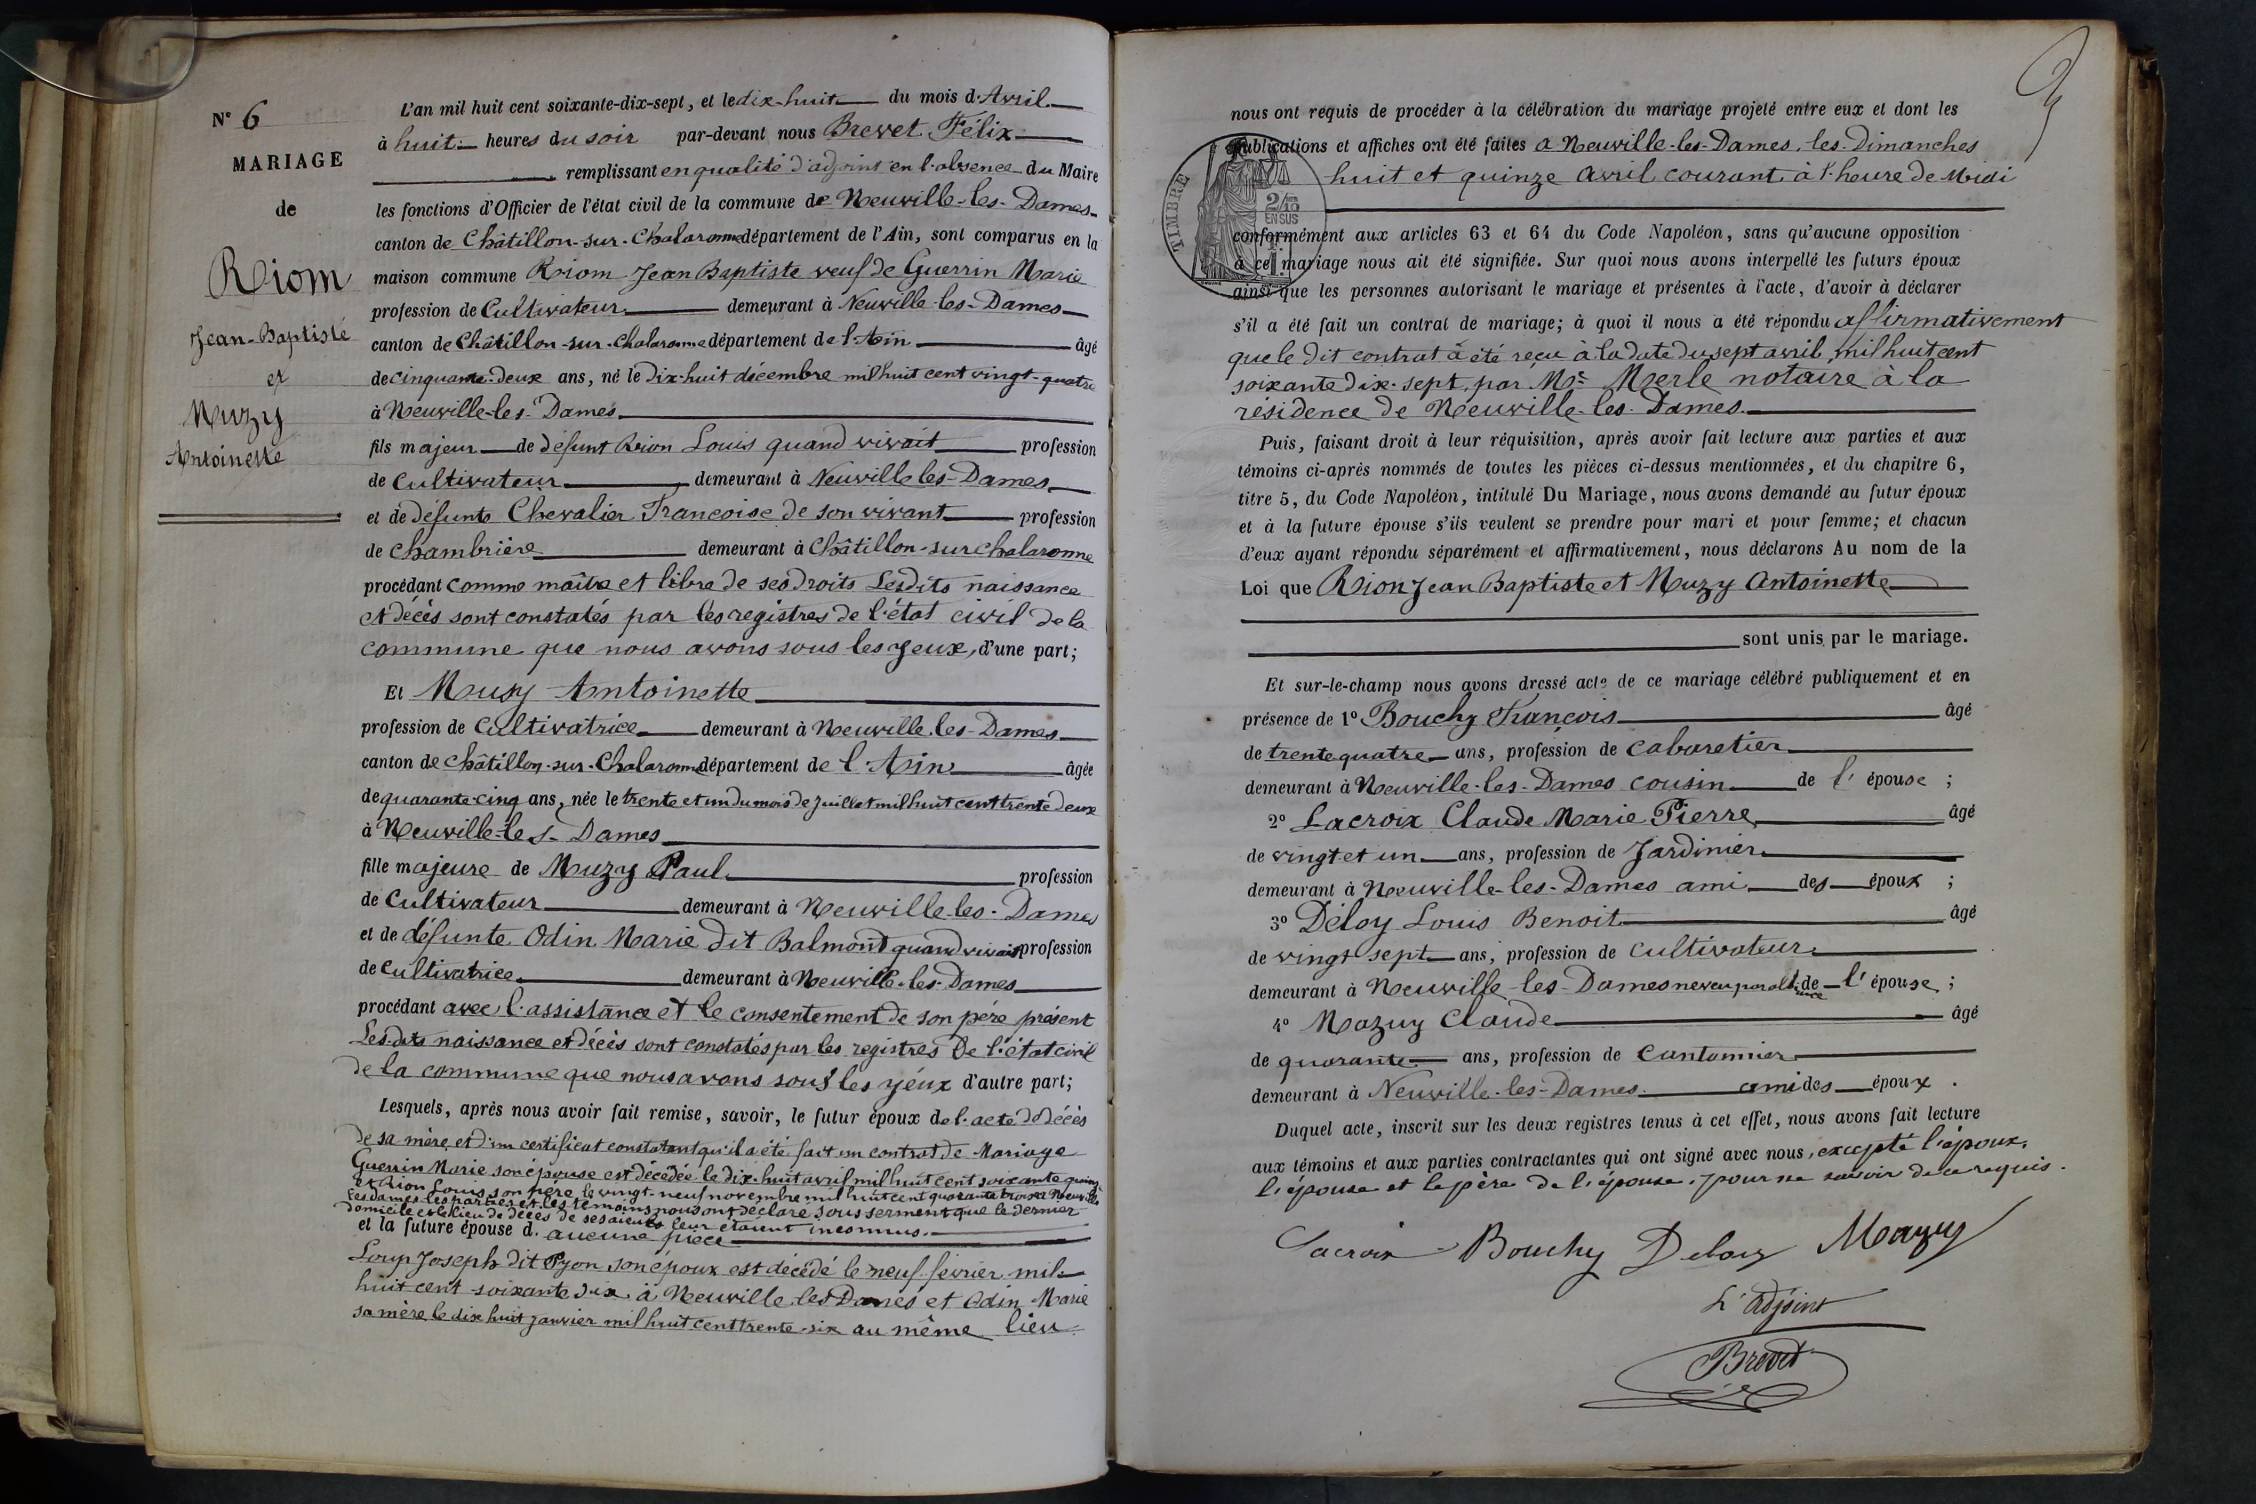 N° 6
MARIAGE
de
Riom
Jean-Baptiste
et
Muzy
Antoinette
L'an mil huit cent soixante-dix-sept, et le dix-huit du mois d'Avril
à huit heures du soir par-devant nous Brevet Félix
remplissant en qualité d'adjoint en l'absence du Maire
les fonctions d'Officier de l'état civil de la commune de Neuville-les-Dames
canton de Châtillon-sur-Chalaronne département de l'Ain, sont comparus en la
maison commune Riom Jean Baptiste veuf de Guerrin Marie
profession de Cultivateur demeurant à Neuville-les-Dames
canton de Châtillon-sur-Chalaronne département de l'Ain âgé
de cinquante-deux ans, né le Dix-huit décembre mil huit cent vingt-quatre
à Neuville-les-Dames
fils majeur de défunt Rion Louis quand vivait profession
de Cultivateur demeurant à Neuville les-Dames
et de défunte Chevalier Francoise de son vivant profession
de Chambrière demeurant à Châtillon-sur Chalaronne
procédant comme maître et libre de ses droits Lesdits naissance
et décès sont constatés par les registres de l'état civil de la
commune que nous avons sous les yeux, d'une part;
Et Muzy Antoinette
profession de Cultivatrice demeurant à Neuville-les-Dames
canton de Châtillon-sur-Chalaronne département de l'Ain âgée
de quarante-cinq ans, née le trente et un du mois de Juillet mil huit cent trente deux
à Neuville-les-Dames
fille majeure de Muzy Paul profession
de Cultivateur demeurant à Neuville-les-Dames
et de défunte Odin Marie dit Balmont quand vivait profession
de Cultivatrice demeurant à Neuville-les-Dames
procédant avec l'assistance et le consentement de son père présent
Les-dits naissance et décès sont constatés par les registres de l'état civil
de la commune que nous avons sous les yeux d'autre part;
Lesquels, après nous avoir fait remise, savoir, le futur époux de l'acte de décès
de sa mère et d'un certificat constatant qu'il a été fait un contrat de Mariage
Guerrin Marie son épouse est décédée le dix-huit avril mil huit cent soixante quinze
et Rion Louis son père le vingt-neuf novembre mil huit cent quarante trois à Neuville
les Dames les parties et les témoins nous ont déclaré sous serment que le dernier
domicile et le lieu de décès de ses aïeuls leur étaient inconnus.
et la future épouse d. aucune pièce
Loup Joseph dit Pyon son époux est décédé le neuf février mil
huit cent soixante dix à Neuville les Dames et Odin Marie
sa mère le dix huit janvier mil huit cent trente-six au même lieu
nous ont requis de procéder à la célébration du mariage projeté entre eux et dont les
publications et affiches ont été faites a Neuville-les-Dames, les Dimanches
huit et quinze Avril courant à l'heure de Midi
TIMBRE
2/10
EN SUS
conformément aux articles 63 et 64 du Code Napoléon, sans qu'aucune opposition
à ce mariage nous ait été signifiée. Sur quoi nous avons interpellé les futurs époux
ainsi que les personnes autorisant le mariage et présentes à l'acte, d'avoir à déclarer
s'il a été fait un contrat de mariage; à quoi il nous a été répondu affirmativement
que le dit contrat à été reçu à la date du sept avril, mil huit cent
soixante dix-sept, par Me Merle notaire à la
résidence de Neuville-les-Dames.
Puis, faisant droit à leur réquisition, après avoir fait lecture aux parties et aux
témoins ci-après nommés de toutes les pièces ci-dessus mentionnées, et du chapitre 6,
titre 5, du Code Napoléon, intitulé Du Mariage, nous avons demandé au futur époux
et à la future épouse s'ils veulent se prendre pour mari et pour femme; et chacun
d'eux ayant répondu séparément et affirmativement, nous déclarons Au nom de la
Loi que Rion Jean Baptiste et Muzy Antoinette
sont unis par le mariage.
Et sur-le-champ nous avons dressé acte de ce mariage célébré publiquement et en
présence de 1° Bouchy François âgé
de trente quatre ans, profession de cabaretier
demeurant à Neuville-les-Dames cousin de l'épouse ;
2° Lacroix Claude Marie Pierre âgé
de vingt et un ans, profession de Jardinier
demeurant à Neuville-les-Dames ami des époux ;
3° Déloy Louis Benoit âgé
de vingt sept ans, profession de Cultivateur
demeurant à Neuville-les-Dames neveu par alliance de l'épouse ;
4° Mazuy Claude âgé
de quarante ans, profession de Cantonnier
demeurant à Neuville-les-Dames ami des époux.
Duquel acte, inscrit sur les deux registres tenus à cet effet, nous avons fait lecture
aux témoins et aux parties contractantes qui ont signé avec nous, excepté l'époux,
l'épouse et le père de l'épouse, pour ne savoir de ce requis.
Lacroix Bouchy Deloy Mazuy
L'adjoint
Brevet